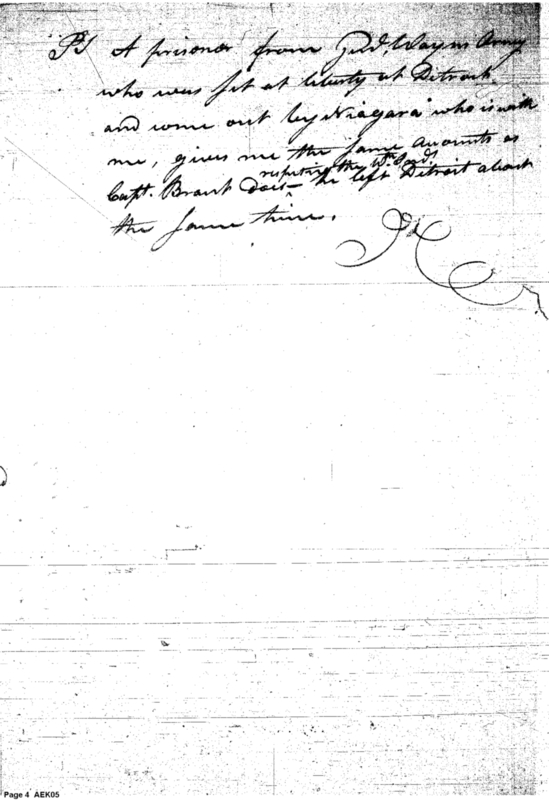 PS A prisoner from Genl. Wayns Army
who was Set at liberty at Ditroit
and come out by Niagara who is with
me, gives me the Same accounts as
respecting the Wn. Inds.
Capt. Brant dois he left Ditroit about
the Same time.
Page 4 AEK05